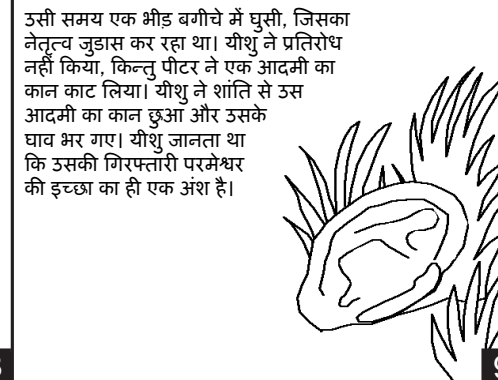 उसी समय एक भीड़ बगीचे में घुसी, जिसका
नेतृत्व जुडास कर रहा था। यीशु ने प्रतिरोध
नहीं किया, किन्तु पीटर ने एक आदमी का
कान काट लिया। यीशु ने शांति से उस
आदमी का कान छुआ और उसके
घाव भर गए। यीशु जानता था
कि उसकी गिरफ्तारी परमेश्वर
की इच्छा का ही एक अंश है।